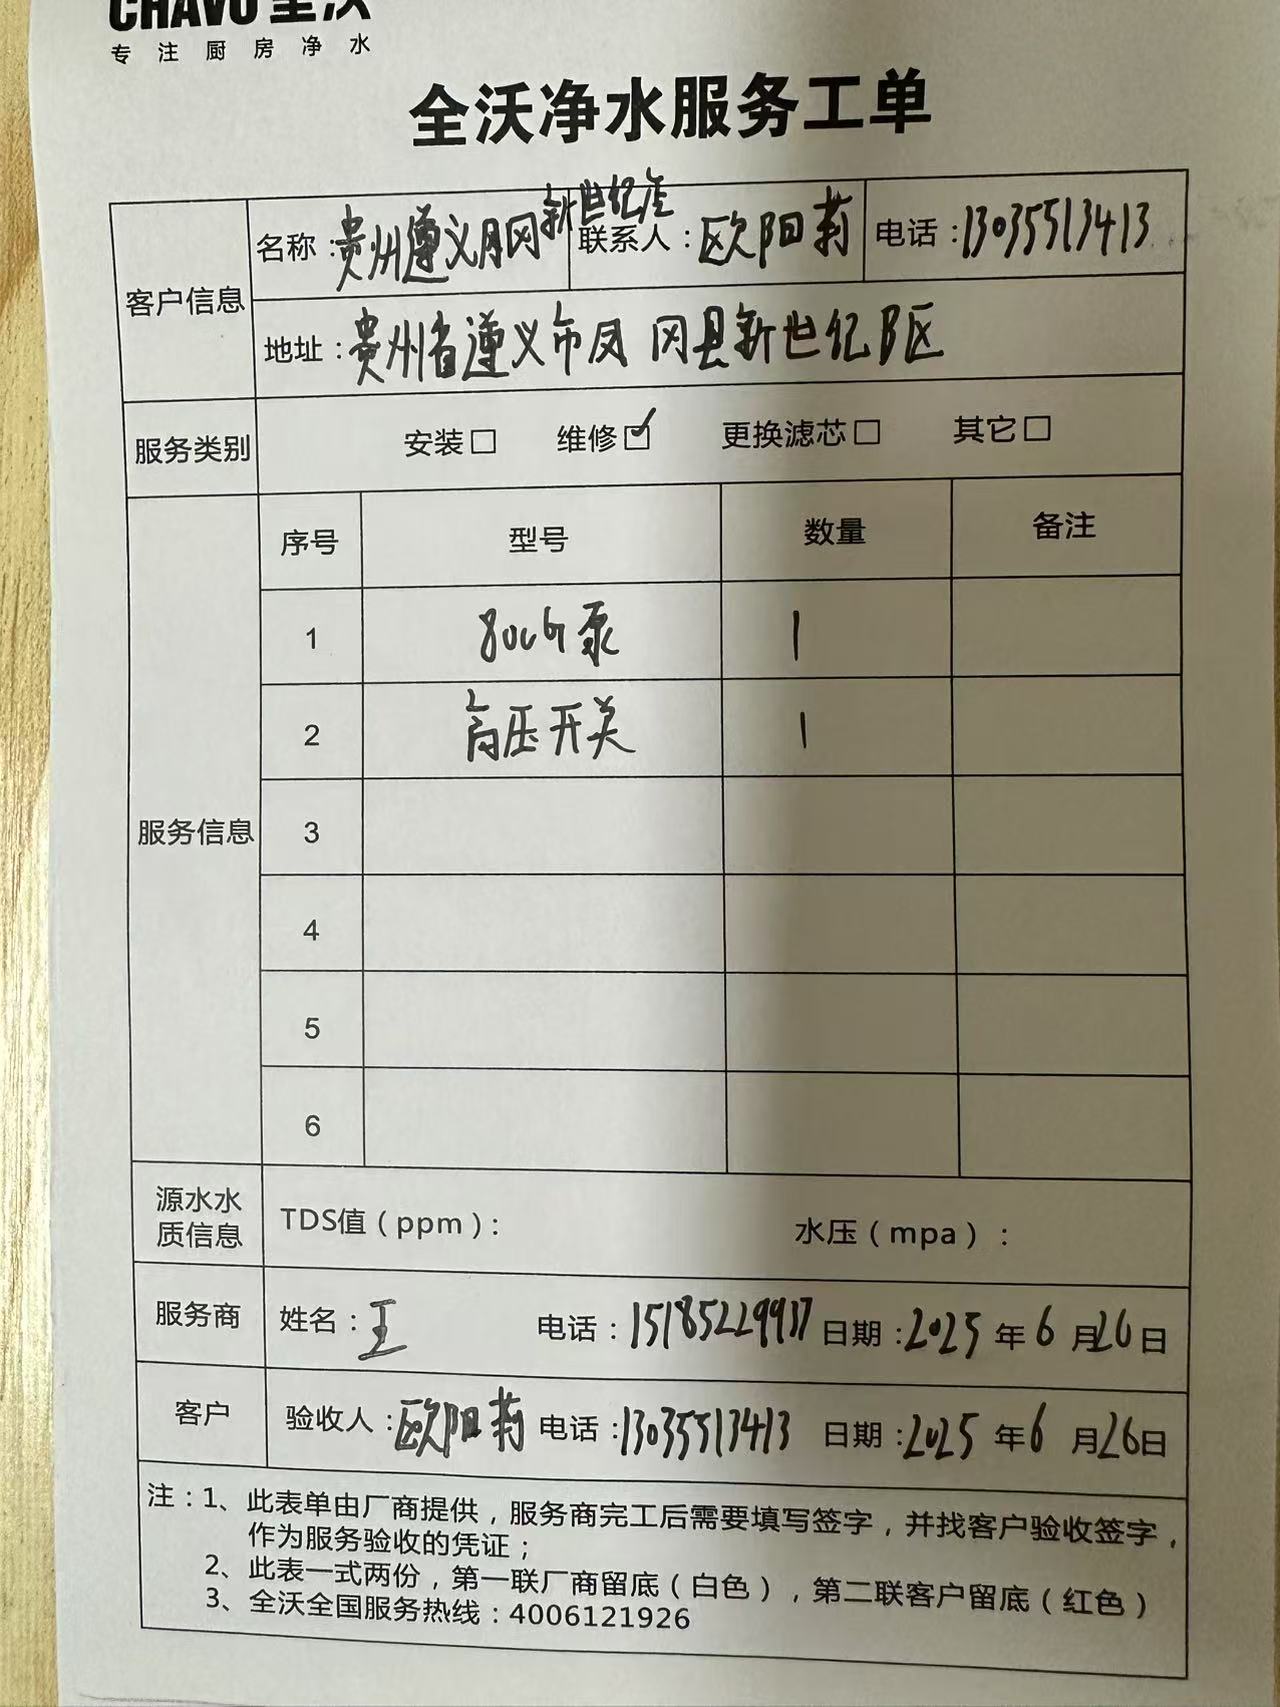 CHAVO 全沃
专注厨房净水
全沃净水服务工单
客户信息
名称：贵州遵义凤冈新世纪店 联系人：欧阳莉 电话：13035513413
地址：贵州省遵义市凤冈县新世纪B区
服务类别 安装□ 维修☑ 更换滤芯□ 其它□
服务信息
序号 型号 数量 备注
1 800G泵 1
2 高压开关 1
3
4
5
6
源水水
质信息
TDS值（ppm）： 水压（mpa）：
服务商 姓名：王 电话：15185229917 日期：2025年6月26日
客户 验收人：欧阳莉 电话：13035513413 日期：2025年6月26日
注：1、此表单由厂商提供，服务商完工后需要填写签字，并找客户验收签字，
作为服务验收的凭证；
2、此表一式两份，第一联厂商留底（白色），第二联客户留底（红色）
3、全沃全国服务热线：4006121926